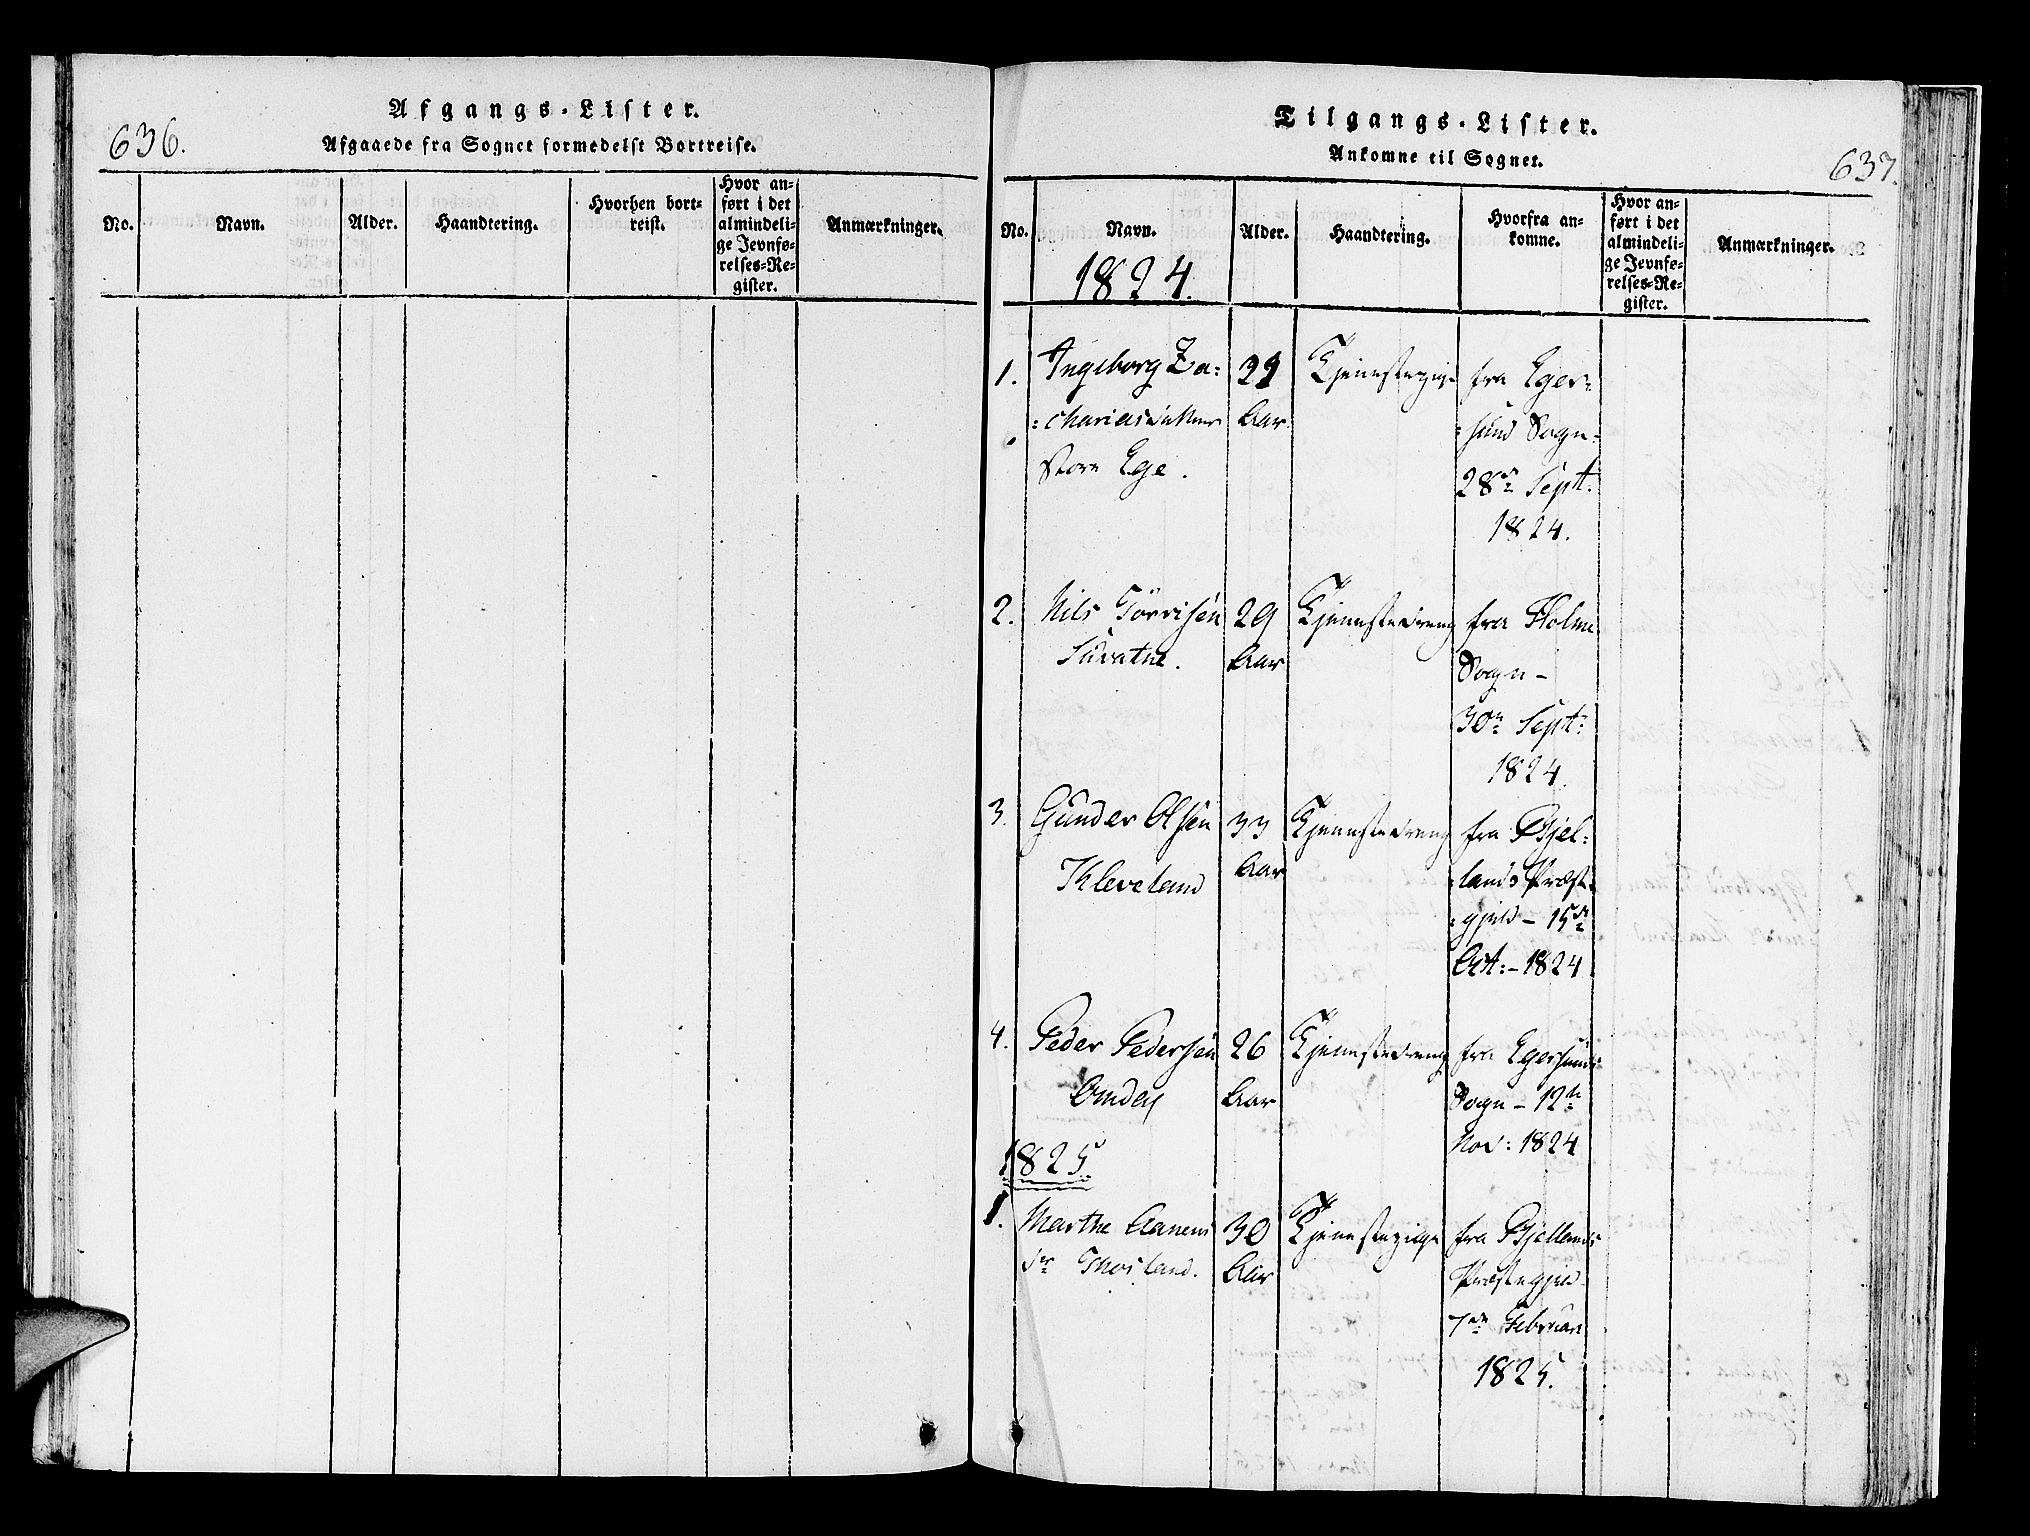 636.
Afgangs-Lister.
Afgaaede fra Sognet formedelst Bortreise.
No.
Navn.
Alder.
Haandtering.
Hvorhen bort-
reist.
Hvor an-
ført i det
almindeli-
ge Jevnfø-
relses-Re-
gister.
Anmærkninger.
Tilgangs-Lister.
Ankomne til Sognet.
637.
No.
Navn.
Alder.
Haandtering.
Hvorfra an-
komne.
Hvor an-
ført i det
almindeli-
ge Jevnfø-
relses-Re-
gister.
Anmærkninger.
1824.
1.
Ingeborg Za=
=chariasdatter
Store Ege.
Aar
Tjenestepige
fra Eger=
=sund Sogn-
28de Sept:
1824.
2.
Nils Törrisen
29
Aar
Tjenestedreng
fra Holme
Sogn-
30te Sept:
1824.
3.
Gunder Olsen
Kleveland
33
Aar
Tjenestedreng
fra Bjel=
=lands Præste
=gjeld - 15de
Oct: - 1824
4.
Peder Pedersen
Omdal
26
Aar
Tjenestedreng
fra Egersunds
Sogn - 12te
Nov: 1824
1825.
1.
Marthe Aanens
dr
30
Aar
Tjenestepige
fra Bjellands
Præstegjeld
7de Februar
1825.